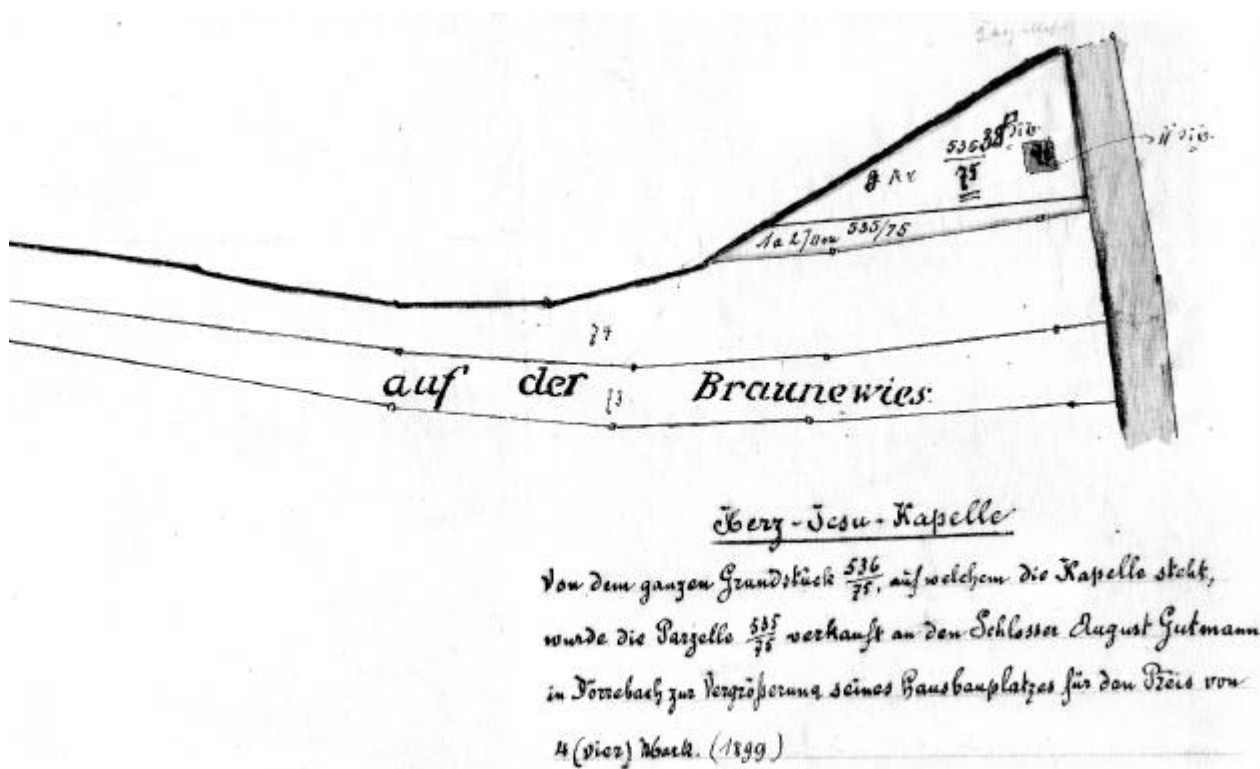 536/75
8 Ar
535/75
74
auf der Braunewies
73
Herz-Jesu-Kapelle
Von dem ganzen Grundstück 536/75, auf welchem die Kapelle steht,
wurde die Parzelle 535/75 verkauft an den Schlosser August Gutmann
in Dörrebach zur Vergrößerung seines Hausbauplatzes für den Preis von
4 (vier) Mark. (1899)